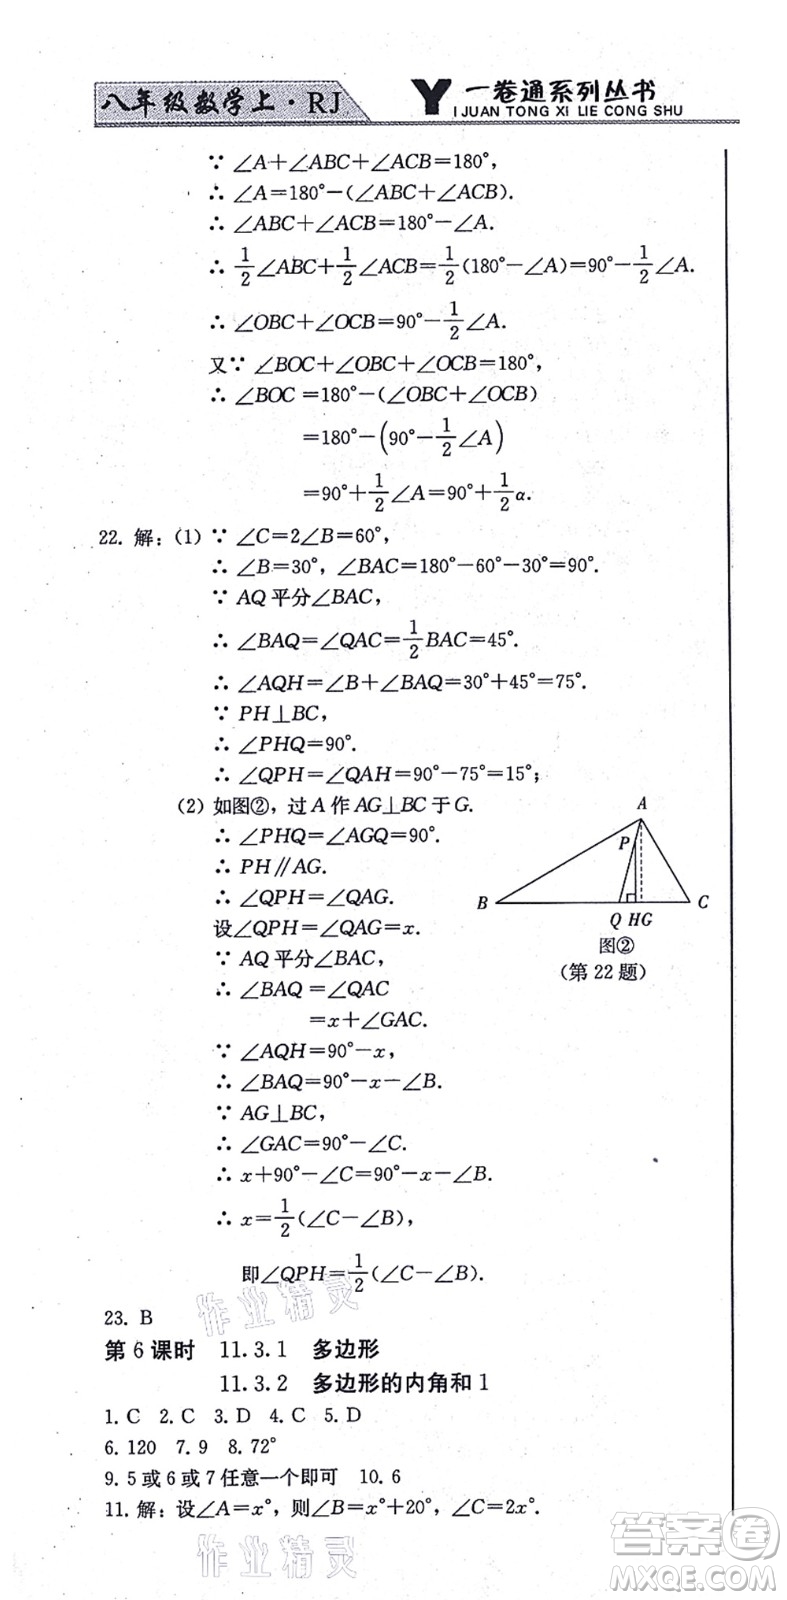 八年级数学上·RJ
Y 一卷通系列丛书
I JUAN TONG XI LIE CONG SHU
∵ ∠A＋∠ABC＋∠ACB＝180°,
∴ ∠A＝180°－(∠ABC＋∠ACB).
∴ ∠ABC＋∠ACB＝180°－∠A.
∴ 1/2∠ABC＋1/2∠ACB＝1/2(180°－∠A)＝90°－1/2∠A.
∴ ∠OBC＋∠OCB＝90°－1/2∠A.
又∵ ∠BOC＋∠OBC＋∠OCB＝180°,
∴ ∠BOC ＝180°－(∠OBC＋∠OCB)
＝180°－(90°－1/2∠A)
＝90°＋1/2∠A＝90°＋1/2α.
22. 解：(1) ∵ ∠C＝2∠B＝60°,
∴ ∠B＝30°, ∠BAC＝180°－60°－30°＝90°.
∵ AQ 平分∠BAC,
∴ ∠BAQ＝∠QAC＝1/2BAC＝45°.
∴ ∠AQH＝∠B＋∠BAQ＝30°＋45°＝75°.
∵ PH⊥BC,
∴ ∠PHQ＝90°.
∴ ∠QPH＝∠QAH＝90°－75°＝15°;
(2) 如图②，过 A 作 AG⊥BC 于 G.
∴ ∠PHQ＝∠AGQ＝90°.
∴ PH∥AG.
∴ ∠QPH＝∠QAG.
设∠QPH＝∠QAG＝x.
∵ AQ 平分∠BAC,
∴ ∠BAQ ＝∠QAC
＝x＋∠GAC.
∵ ∠AQH＝90°－x,
∴ ∠BAQ＝90°－x－∠B.
∵ AG⊥BC,
∴ ∠GAC＝90°－∠C.
∴ x＋90°－∠C＝90°－x－∠B.
∴ x＝1/2(∠C－∠B),
即∠QPH＝1/2(∠C－∠B).
A
P
B
C
Q HG
图②
(第 22 题)
23. B
第 6 课时 11.3.1 多边形
11.3.2 多边形的内角和 1
1. C 2. C 3. D 4. C 5. D
6. 120 7. 9 8. 72°
9. 5 或 6 或 7 任意一个即可 10. 6
11. 解：设∠A＝x°, 则∠B＝x°＋20°, ∠C＝2x°.
作业精灵
作业精灵
答案圈
MXQE.COM